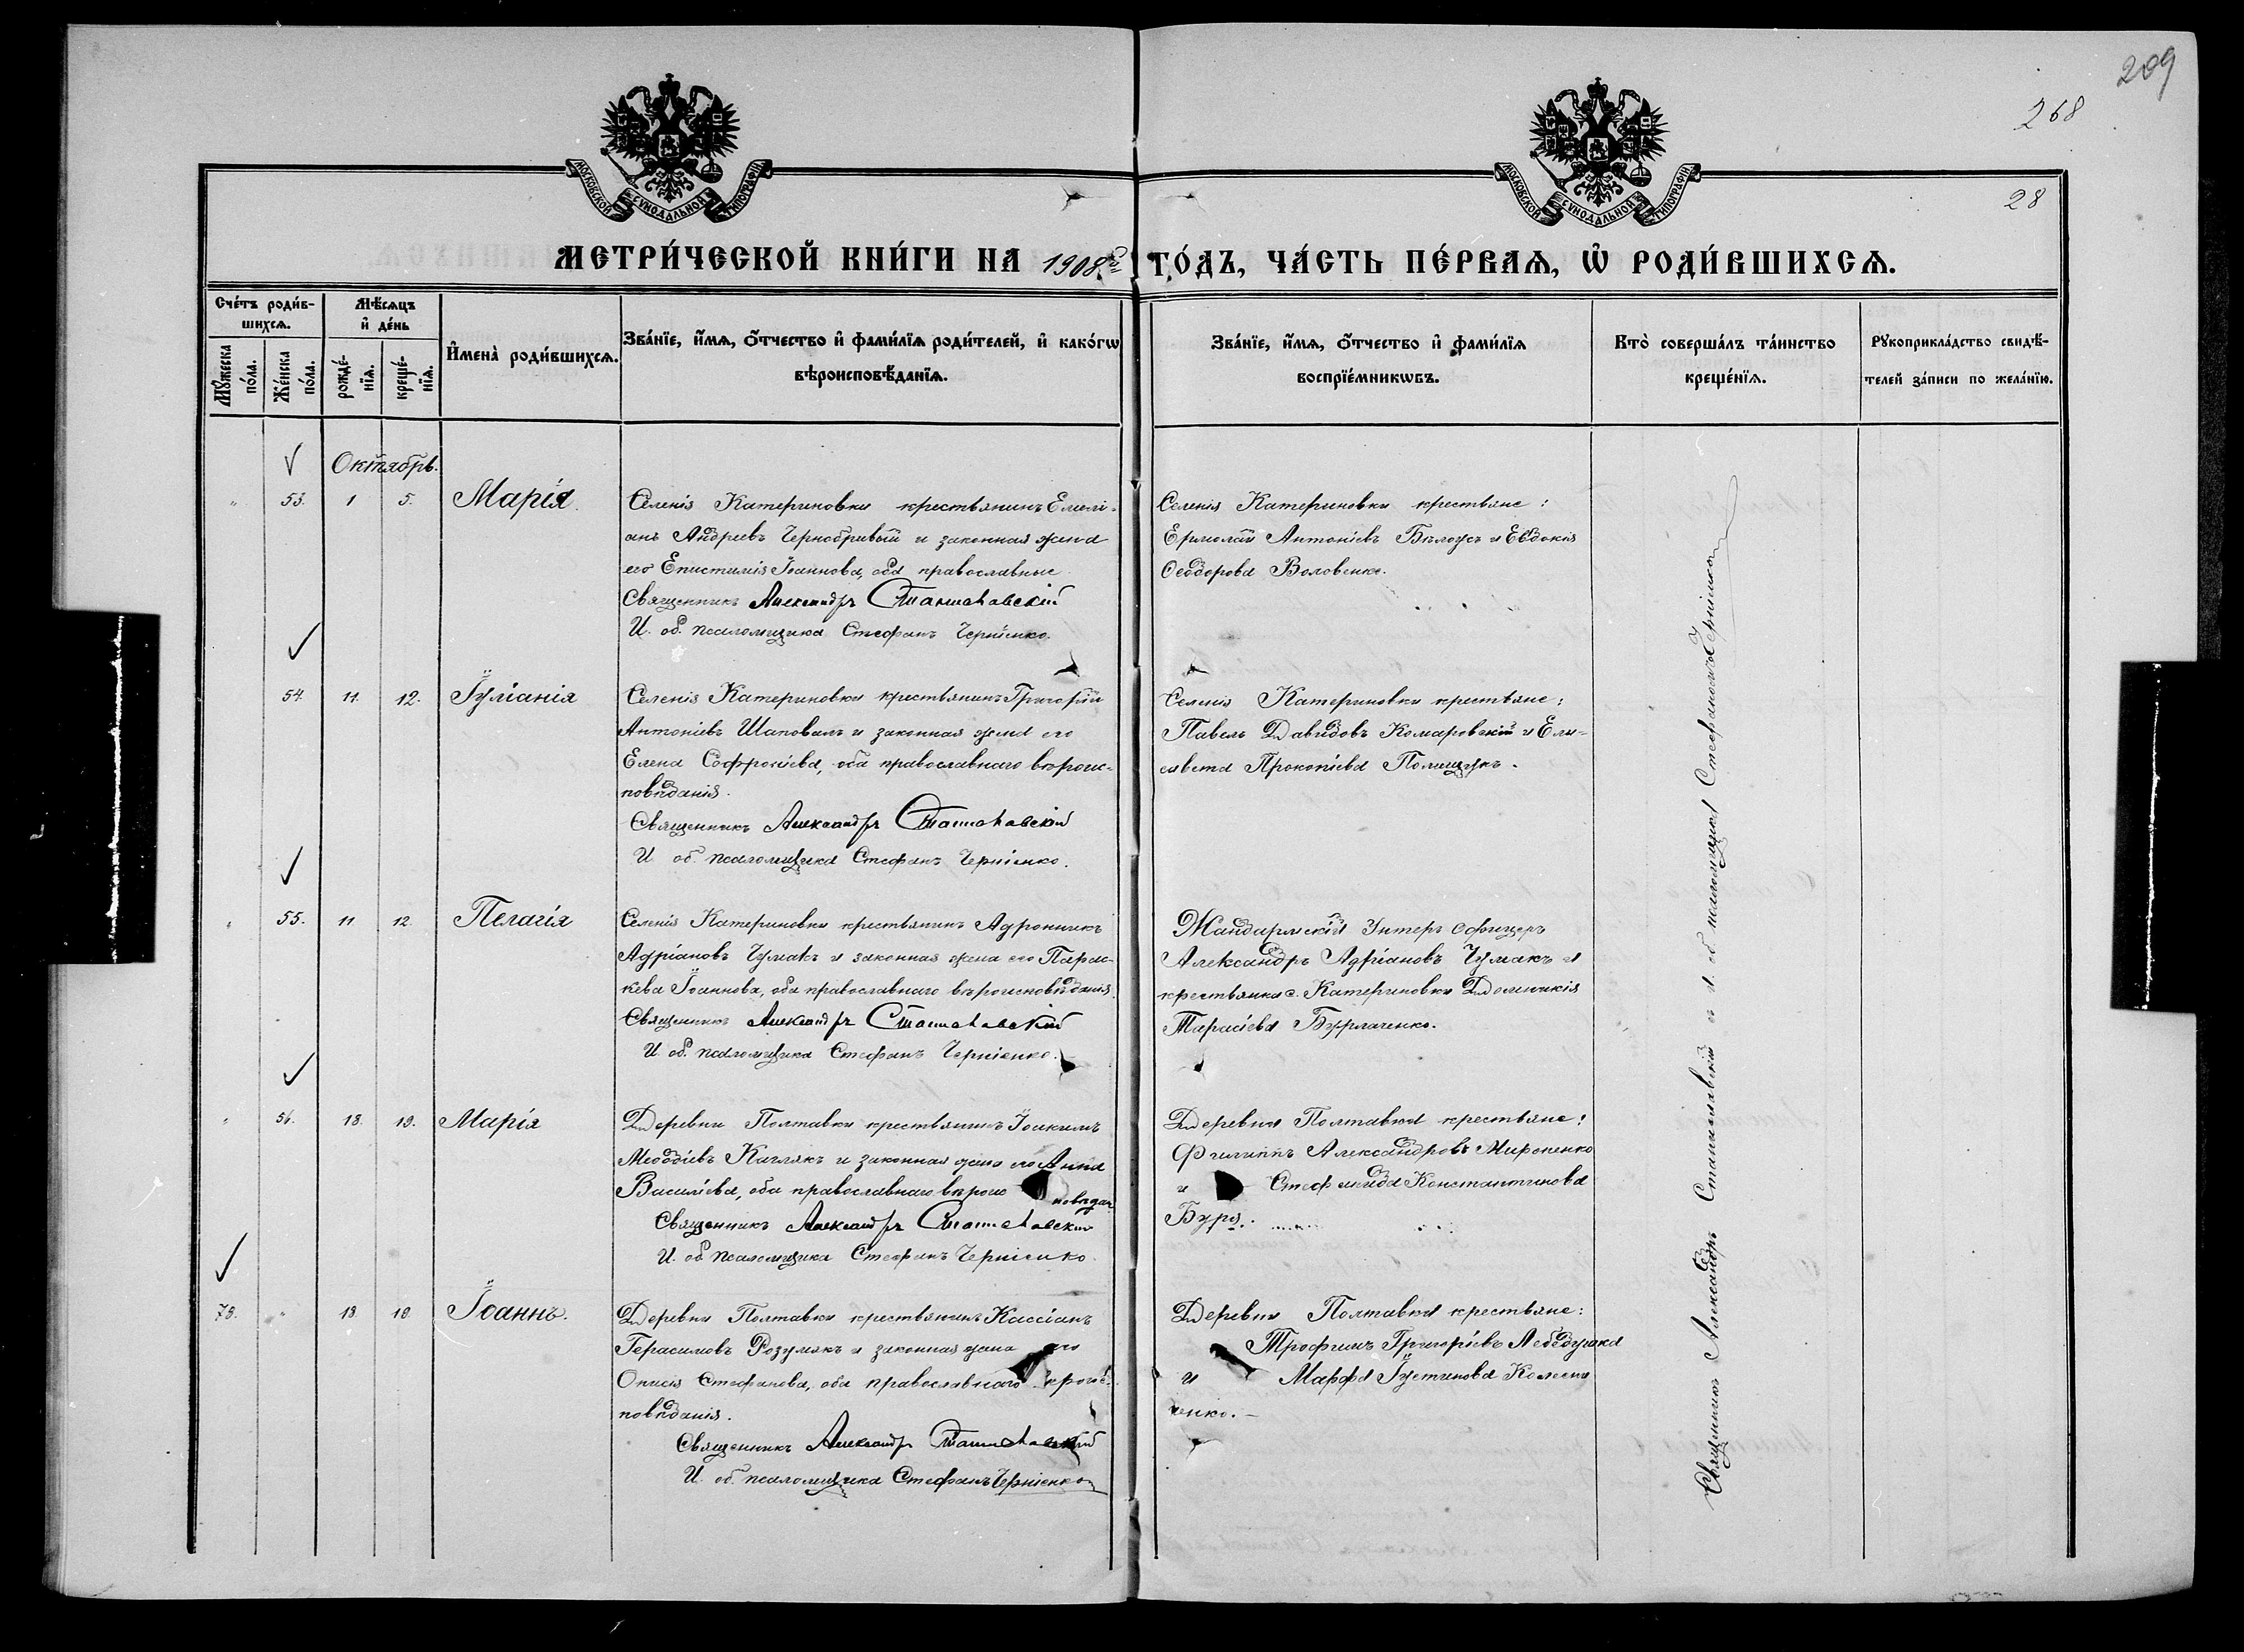 209
268
28
МОСКОВСКОЙ СУНОДАЛЬНОЙ ТИПОГРАФІИ
МОСКОВСКОЙ СУНОДАЛЬНОЙ ТИПОГРАФІИ
МЕТРИ́ЧЕСКОЙ КНИ́ГИ НА 1908 го́дъ, ЧА́СТЬ ПЕ́РВАѦ, Ѡ҆ РОДИ́ВШИХСѦ.
Сче́тъ роди́в-
шихсѧ.
Мѣ́сѧцъ
и҆ де́нь
Мꙋ́жеска
по́ла.
Же́нска
по́ла.
рожде́-
нїѧ.
креще́-
нїѧ.
И҆мена̀ роди́вшихсѧ.
Зва́нїе, и҆́мѧ, ѻ҆́тчество и҆ фами́лїѧ роди́телей, и҆ како́гѡ
вѣроисповѣ́данїѧ.
Зва́нїе, и҆́мѧ, ѻ҆́тчество и҆ фами́лїѧ
воспрїе́мникѡвъ.
Кто̀ соверша́лъ та́инство
креще́нїѧ.
Рꙋкоприкла́дство свидѣ́-
телей за́писи по жела́нїю.
Октябрь.
53. 1 5. Марія.
Селенія Катериновки крестьянинъ Емелі-
анъ Андреевъ Чернобривый и законная жена
его Епистимія Іоаннова, оба православные
Священникъ Александръ Станиславскій
И. об. псаломщика Стефанъ Черніенко.
Селенія Катериновки крестьяне:
Ермолай Антоніевъ Бѣлоусъ и Евдокія
Ѳеодорова Воловенко.
54. 11. 12. Іуліанія
Селенія Катериновки крестьянинъ Григорій
Антоніевъ Шаповалъ и законная жена его
Елена Софроніева, оба православнаго вѣроис-
повѣданія.
Священникъ Александръ Станиславскій
И об. псаломщика Стефанъ Черніенко.
Селенія Катериновки крестьяне:
Павелъ Давидовъ Комаровскій и Ели-
савета Прокопіева Полищукъ.
55. 11 12. Пелагія
Селенія Катериновки крестьянинъ Адроникъ
Адріановъ Чумакъ и законная жена его Парас-
кева Іоаннова, оба православнаго вѣроисповѣданія.
Священникъ Александръ Станиславскій
И. об. псаломщика Стефанъ Черніенко.
Жандармскій Унтеръ Офицеръ
Александръ Адріановъ Чумакъ и
крестьянка с. Катериновки Домникія
Тарасіева Бурлаченко.
56. 18. 19. Марія
Деревни Полтавки крестьянинъ Іоакимъ
Меѳодіевъ Каглякъ и законная жена его Анна
Василіева, оба православнаго вѣроисповѣдан.
Священникъ Александръ Станиславскій
И. об. псаломщика Стефанъ Черніенко.
Деревни Полтавки крестьяне:
Филиппъ Александровъ Мироненко
и Стефанида Константинова
Бура.
73. 18. 19. Іоаннъ.
Деревни Полтавки крестьянинъ Кассіанъ
Герасимовъ Розумякъ и законная жена его
Онисія Стефанова, оба православнаго вѣроис-
повѣданія.
Священникъ Александръ Станиславскій
И. об. псаломщика Стефанъ Черніенко
Деревни Полтавки крестьяне:
Трофимъ Григоріевъ Лебедушка
и Марфа Іустинова Колесни
ченко.
Священникъ Александръ Станиславскій съ и. об. псаломщика Стефаномъ Черніенкомъ